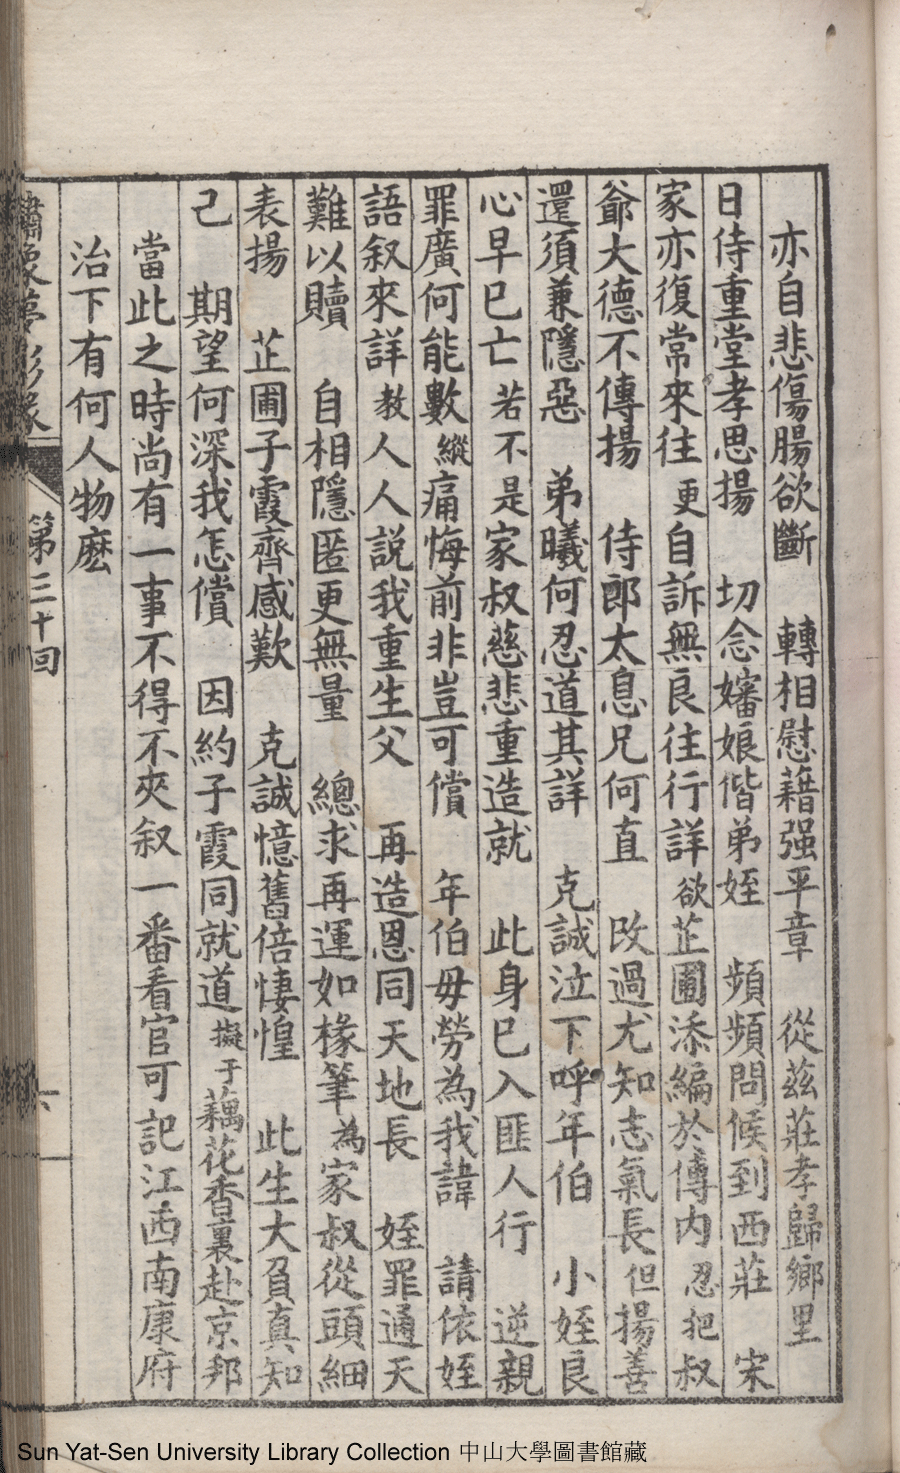 亦自悲傷腸欲斷　轉相慰藉强平章　從茲莊孝歸鄉里
日侍重堂孝思揚　切念嬸娘偕弟姪　頻頻問候到西莊　宋
家亦復常來往　更自訴無良往行詳　欲芷圃添編於傳内　忍把叔
爺大德不傳揚　侍郎太息兄何直　改過尤知志氣長　但揚善
還須兼隱惡　弟曦何忍道其詳　克誠泣下呼年伯　小姪良
心早已亡　若不是家叔慈悲重造就　此身已入匪人行　逆親
罪廣何能數　縱痛悔前非豈可償　年伯毋勞為我諱　請依姪
語叙來詳　教人人說我重生父　再造恩同天地長　姪罪通天
難以贖　自相隱匿更無量　總求再運如椽筆　為家叔從頭細
表揚　芷圃子霞齊感歎　克誠憶舊倍悽惶　此生大負真知
己　期望何深我怎償　因約子霞同就道　擬于藕花香裏赴京邦
當此之時尚有一事不得不夾叙一番看官可記江西南康府
治下有何人物麽
夢影緣
第三十回
六
Sun Yat-Sen University Library Collection 中山大學圖書館藏